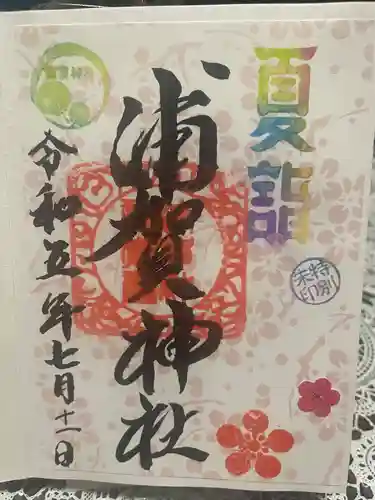 夏詣
特別
朱印
浦賀神社
令和五年七月十一日